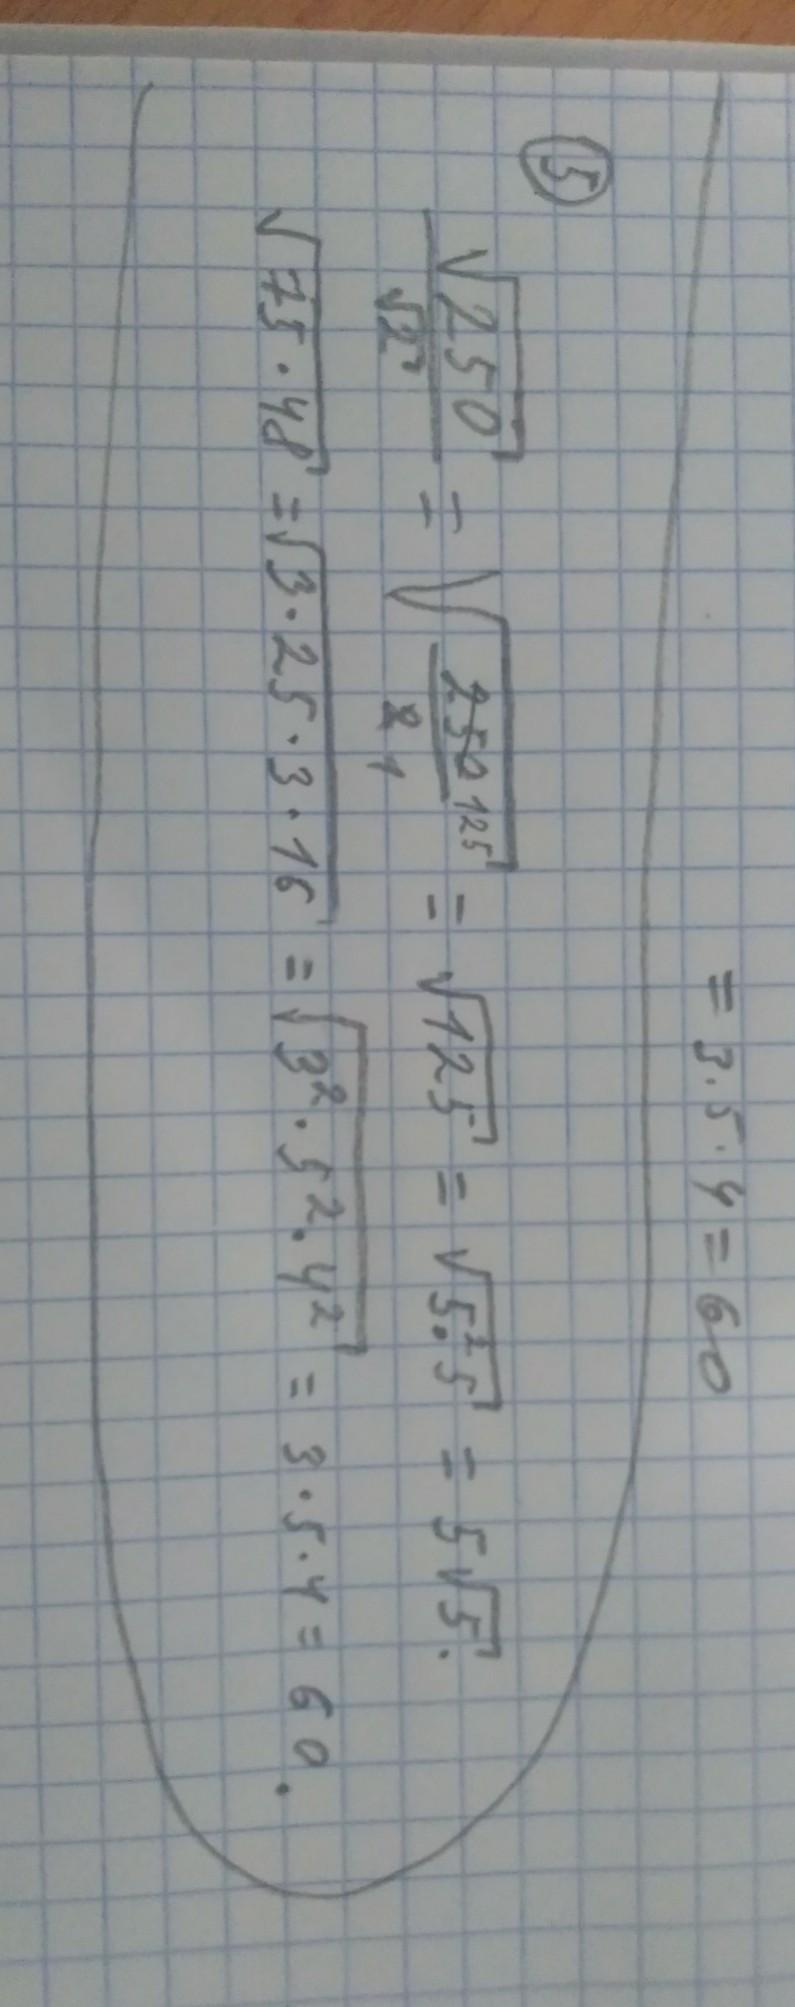 = 3·5·4 = 60
⑤ √250/√2 = √(250 125/2 1) = √125 = √(5²·5) = 5√5.
√(75·48) = √(3·25·3·16) = √(3²·5²·4²) = 3·5·4 = 60.